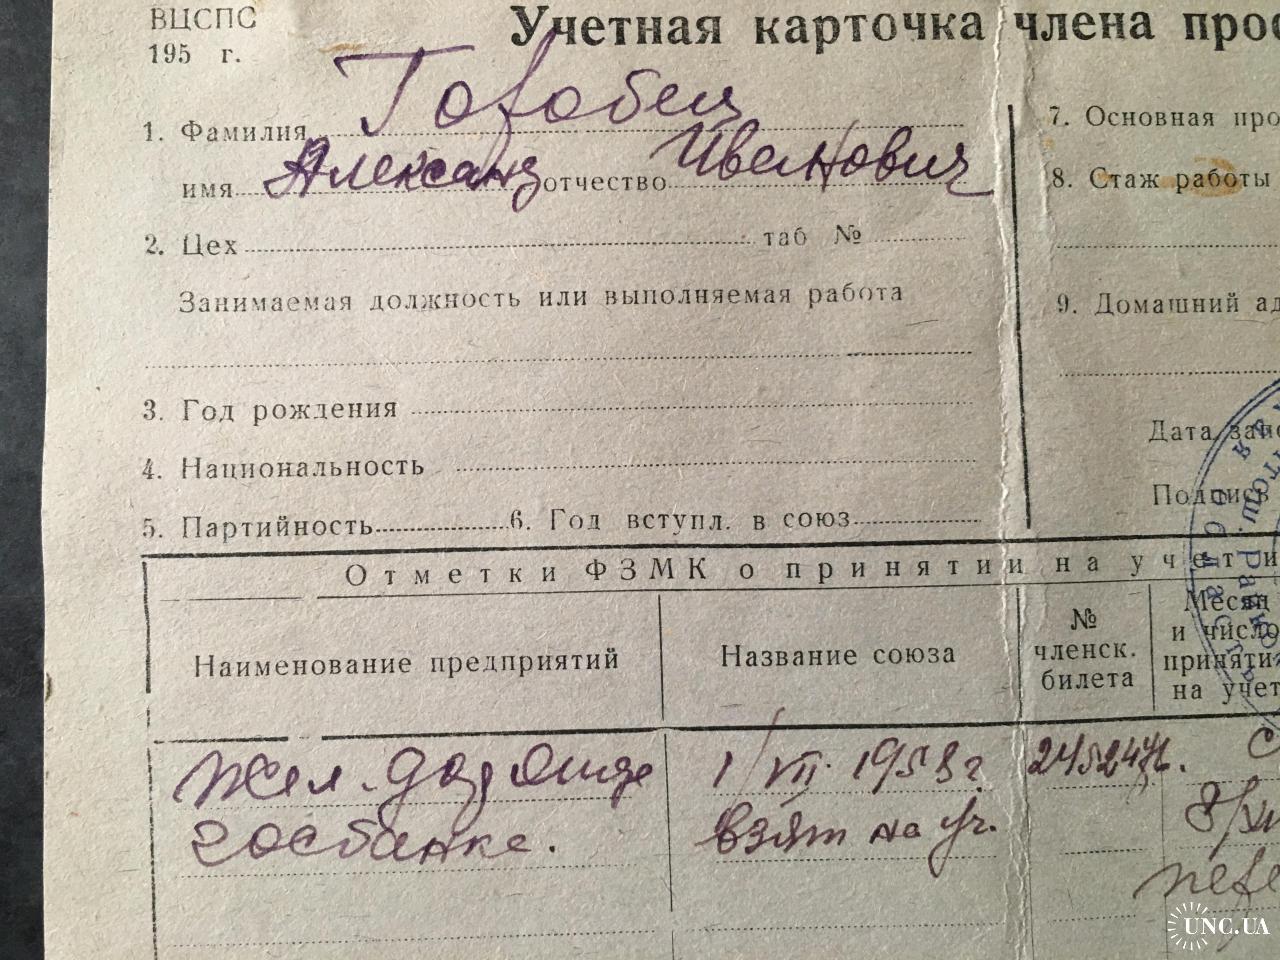 ВЦСПС
195 г.
Учетная карточка члена проф
1. Фамилия Горобец
имя Александр отчество Иванович
2. Цех таб №
Занимаемая должность или выполняемая работа
3. Год рождения
4. Национальность
5. Партийность 6. Год вступл. в союз
7. Основная про
8. Стаж работы
9. Домашний ад
Дата запо
Подпись
Отметки ФЗМК о принятии на учет и
Наименование предприятий
Название союза
№ членск. билета
Месяц и число приняти на учет
Жел. дор
госбанка.
1/VII. 1953 г.
взят на уч.
UNC.UA